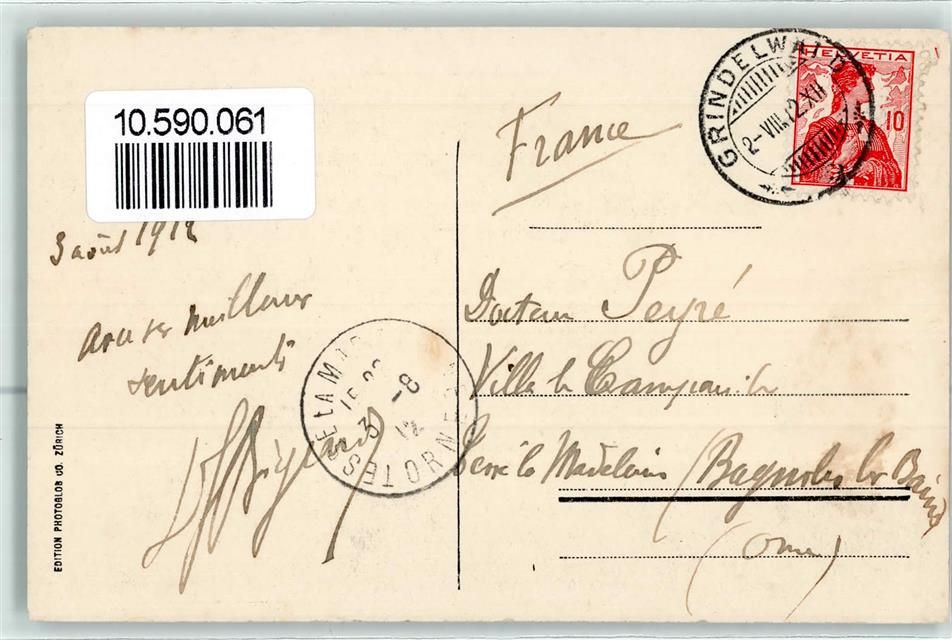 10.590.061
GRINDELWALD
2-VIII.12.XII
HELVETIA
10
France
3 août 1912
Avec ses meilleurs
sentiments
TESSE LA MAD
3 -8
12
ORNE
Docteur Peyré
Villa le Campanile
Tessé la Madeleine (Bagnoles les Bains
(Orne)
EDITION PHOTOGLOB CO. ZÜRICH